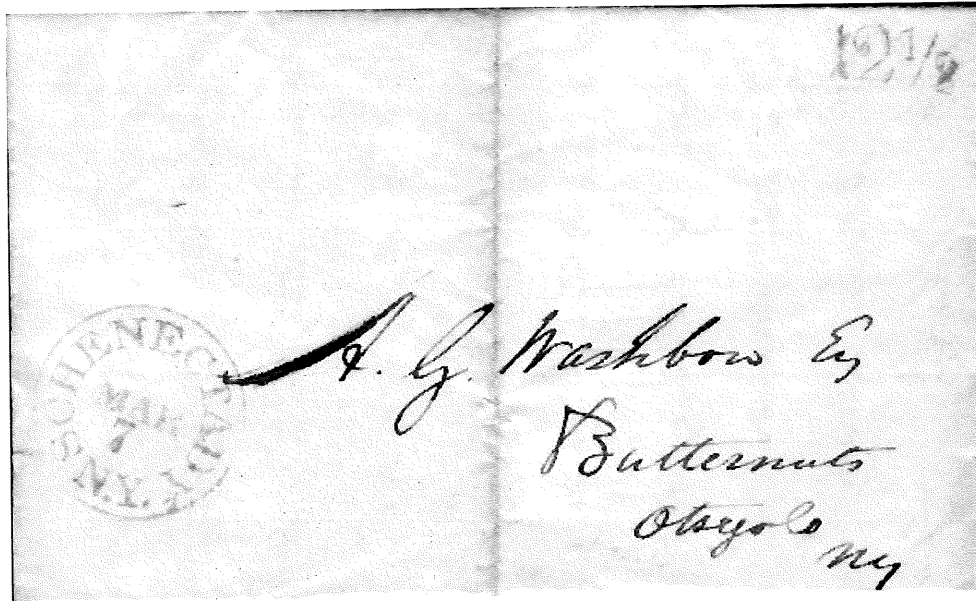 12 1/2
SCHENECTADY N.Y.
MAR
A. G. Washbon Esq
Butternuts
Otsego Co
NY